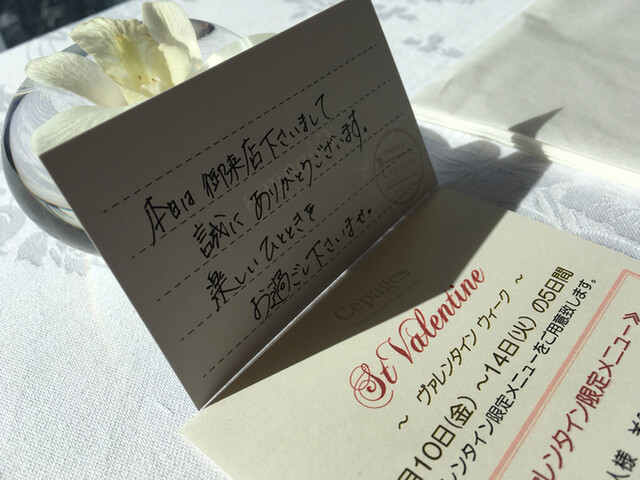 本日は 御来店下さいまして
誠に ありがとうございます。
楽しいひとときを
お過ごし下さいませ。
Cepages
St Valentine
～ ヴァレンタイン ウィーク ～
月10日(金) ～14日(火) の5日間
レンタイン限定メニューをご用意致します。
ァレンタイン限定メニュー》
人様